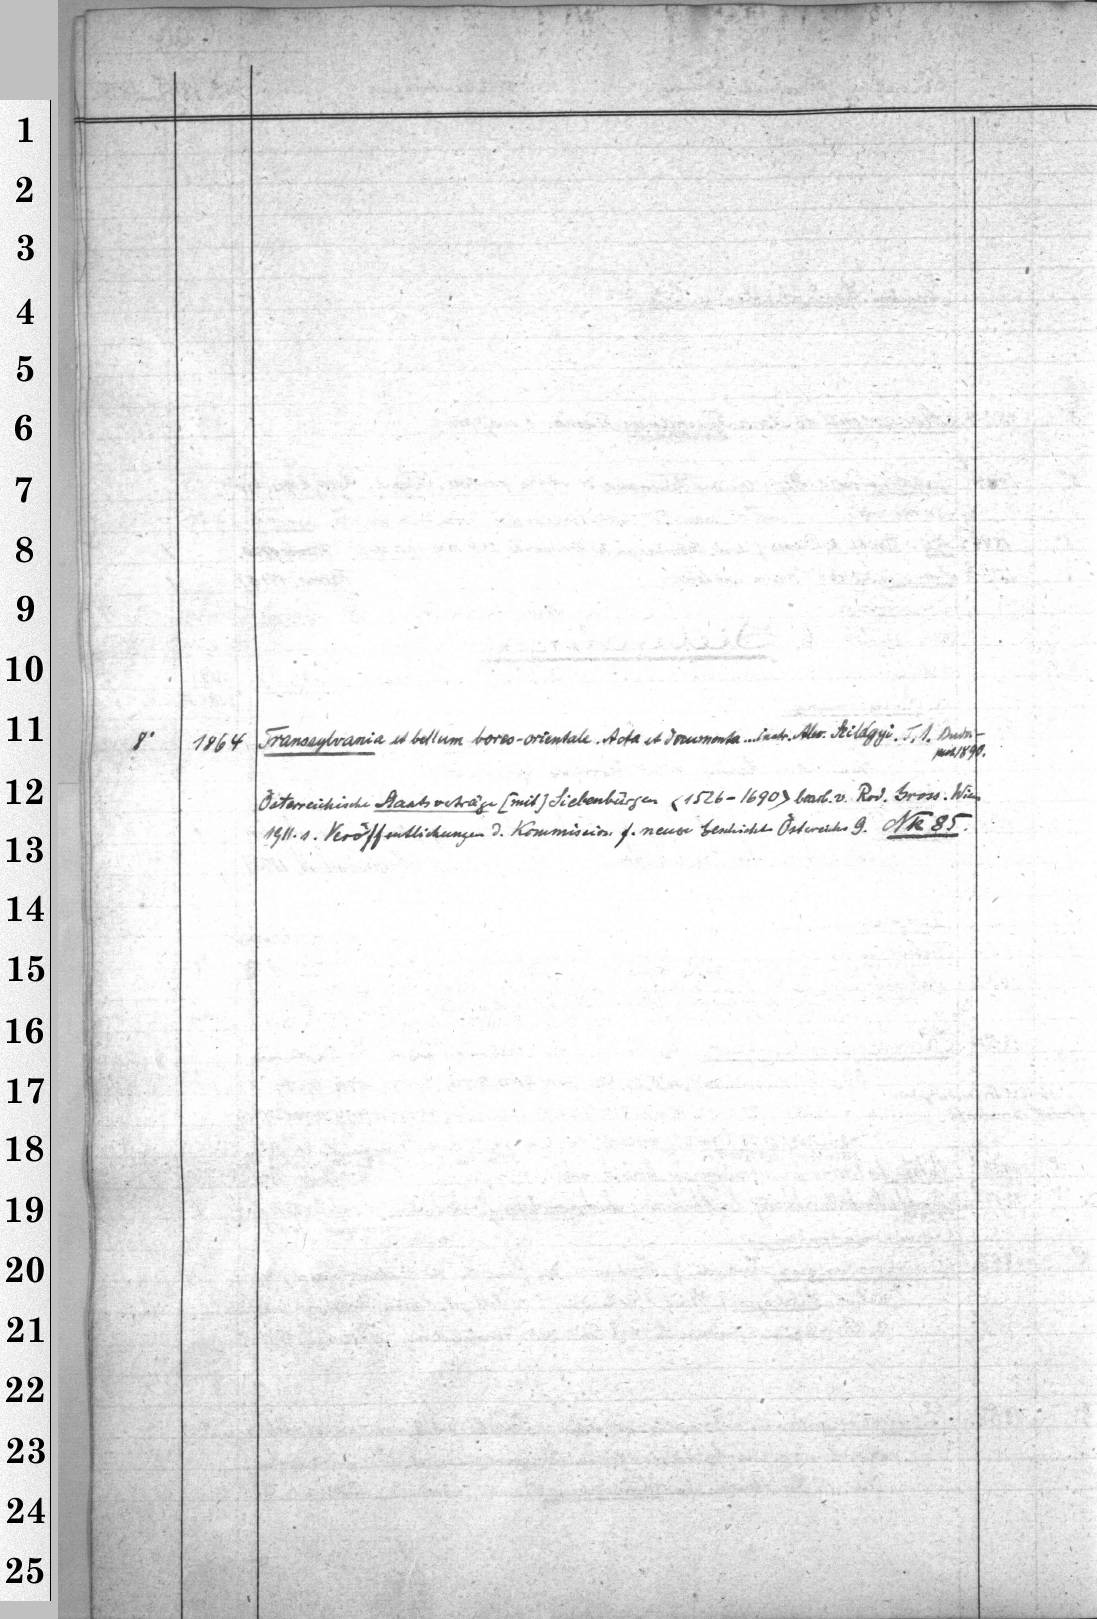 1
2
3
4
5
6
7
8
9
10
11
12
13
14
15
16
17
18
19
20
21
22
23
24
25
8° 1864 Transsylvania et bellum boreo-orientale. Acta et documenta... instr. Alex. Szilágyi. T. 1. Buda-
pest 1890.
Österreichische Staatsverträge [mit] Siebenbürgen <1526-1690> bearb. v. Rod. Gross. Wien
1911. s. Veröffentlichungen d. Kommission f. neuere Geschichte Österreichs 9. NK 85.